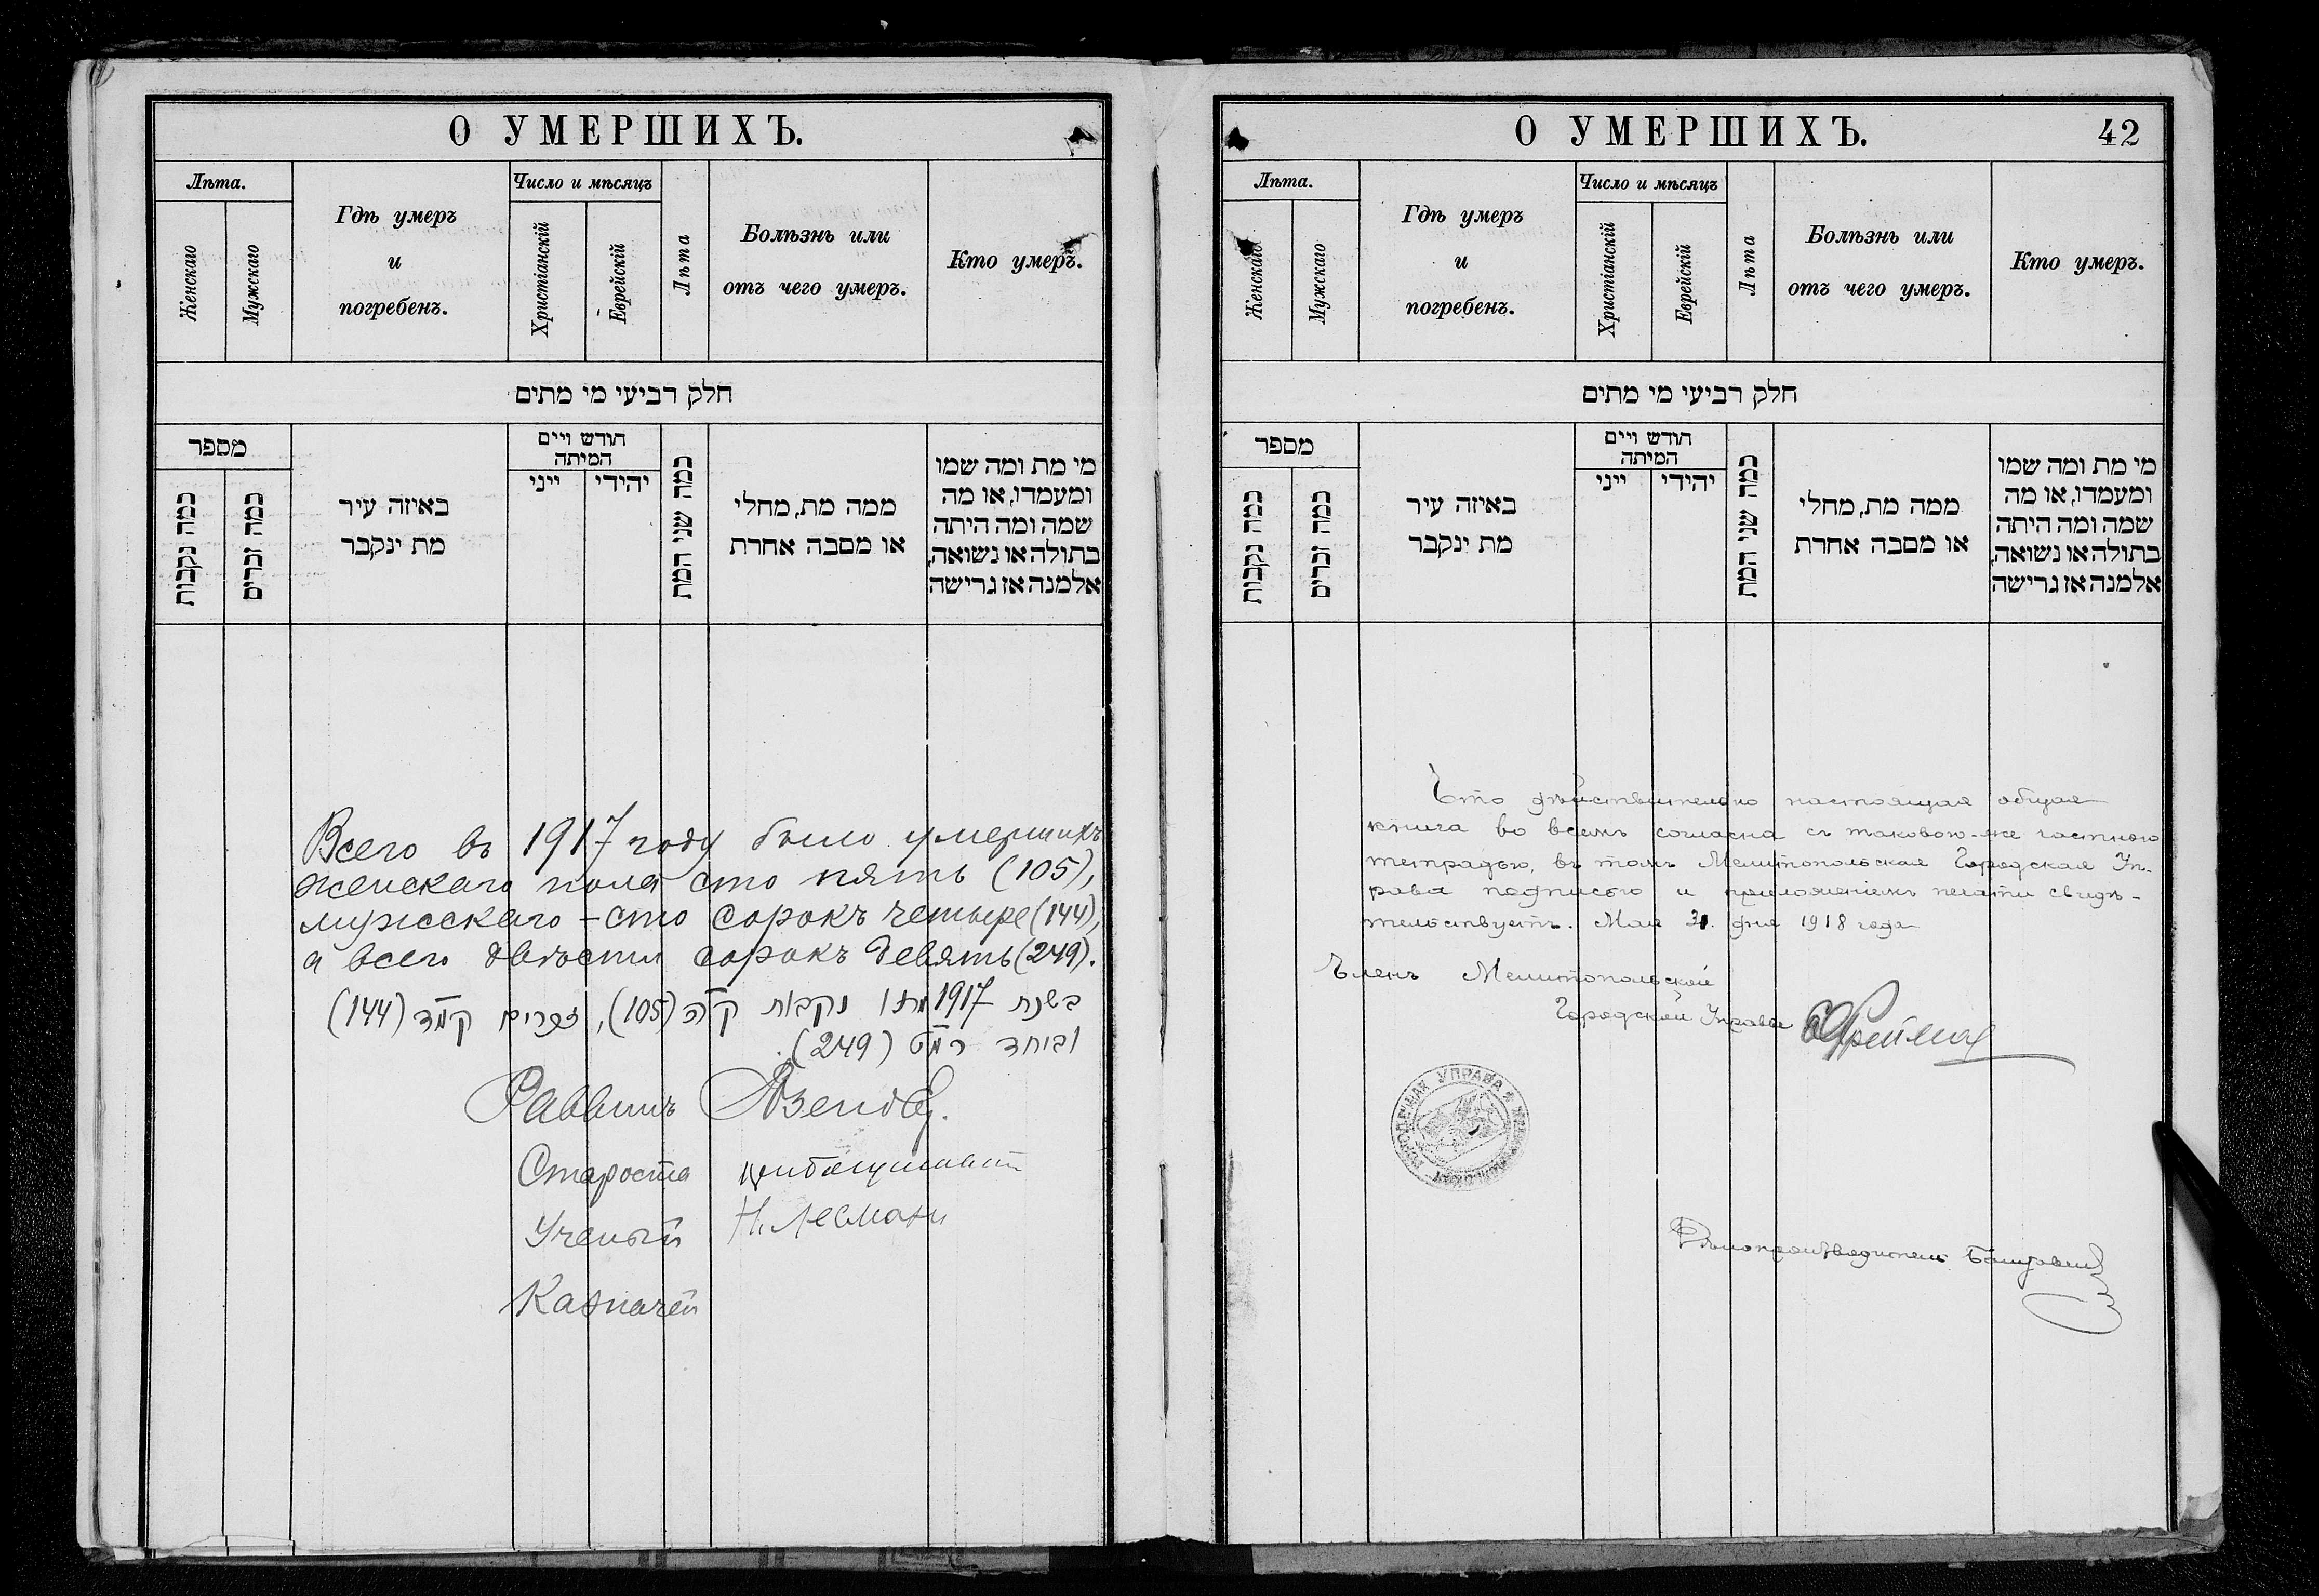 О УМЕРШИХЪ.
Лѣта.
Женскаго
Мужскаго
Гдѣ умеръ
и
погребенъ.
Число и мѣсяцъ
Христіанскій
Еврейскій
Лѣта
Болѣзнь или
отъ чего умеръ.
Кто умеръ.
חלק רביעי מי מתים
מספר
כמה נקבות
כמה זכרים
באיזה עיר
מת ינקבר
חודש ויים
המיתה
ייני
יהידי
כמה שני המת
ממה מת, מחלי
או מסבה אחרת
מי מת ומה שמו
ומעמדו, או מה
שמה ומה היתה
בתולה או נשואה,
אלמנה אז גרישה
Всего въ 1917 году было умершихъ
женскаго пола сто пять (105),
мужскаго - сто сорокъ четыре (144),
а всего двѣсти сорокъ девять (249).
בשנת 1917 מתו נקבות ק״ה (105), זכרים קמ״ד (144)
וביחד רמ״ט (249).
Раввинъ
Староста
Ученый Н. Лесманъ
Казначей
О УМЕРШИХЪ.
42
Лѣта.
Женскаго
Мужскаго
Гдѣ умеръ
и
погребенъ.
Число и мѣсяцъ
Христіанскій
Еврейскій
Лѣта
Болѣзнь или
отъ чего умеръ.
Кто умеръ.
חלק רביעי מי מתים
מספר
כמה נקבות
כמה זכרים
באיזה עיר
מת ינקבר
חודש ויים
המיתה
ייני
יהידי
כמה שני המת
ממה מת, מחלי
או מסבה אחרת
מי מת ומה שמו
ומעמדו, או מה
שמה ומה היתה
בתולה או נשואה,
אלמנה אז גרישה
Что дѣйствительно настоящая общая
книга во всемъ согласна съ таковою-же частною
тетрадью, въ томъ Мелитопольская Городская Уп-
рава подписью и приложеніемъ печати свидѣ-
тельствуетъ. Мая 31 дня 1918 года
Членъ Мелитопольской
Городской Управы
ГОРОДСКАЯ УПРАВА
Дѣлопроизводитель